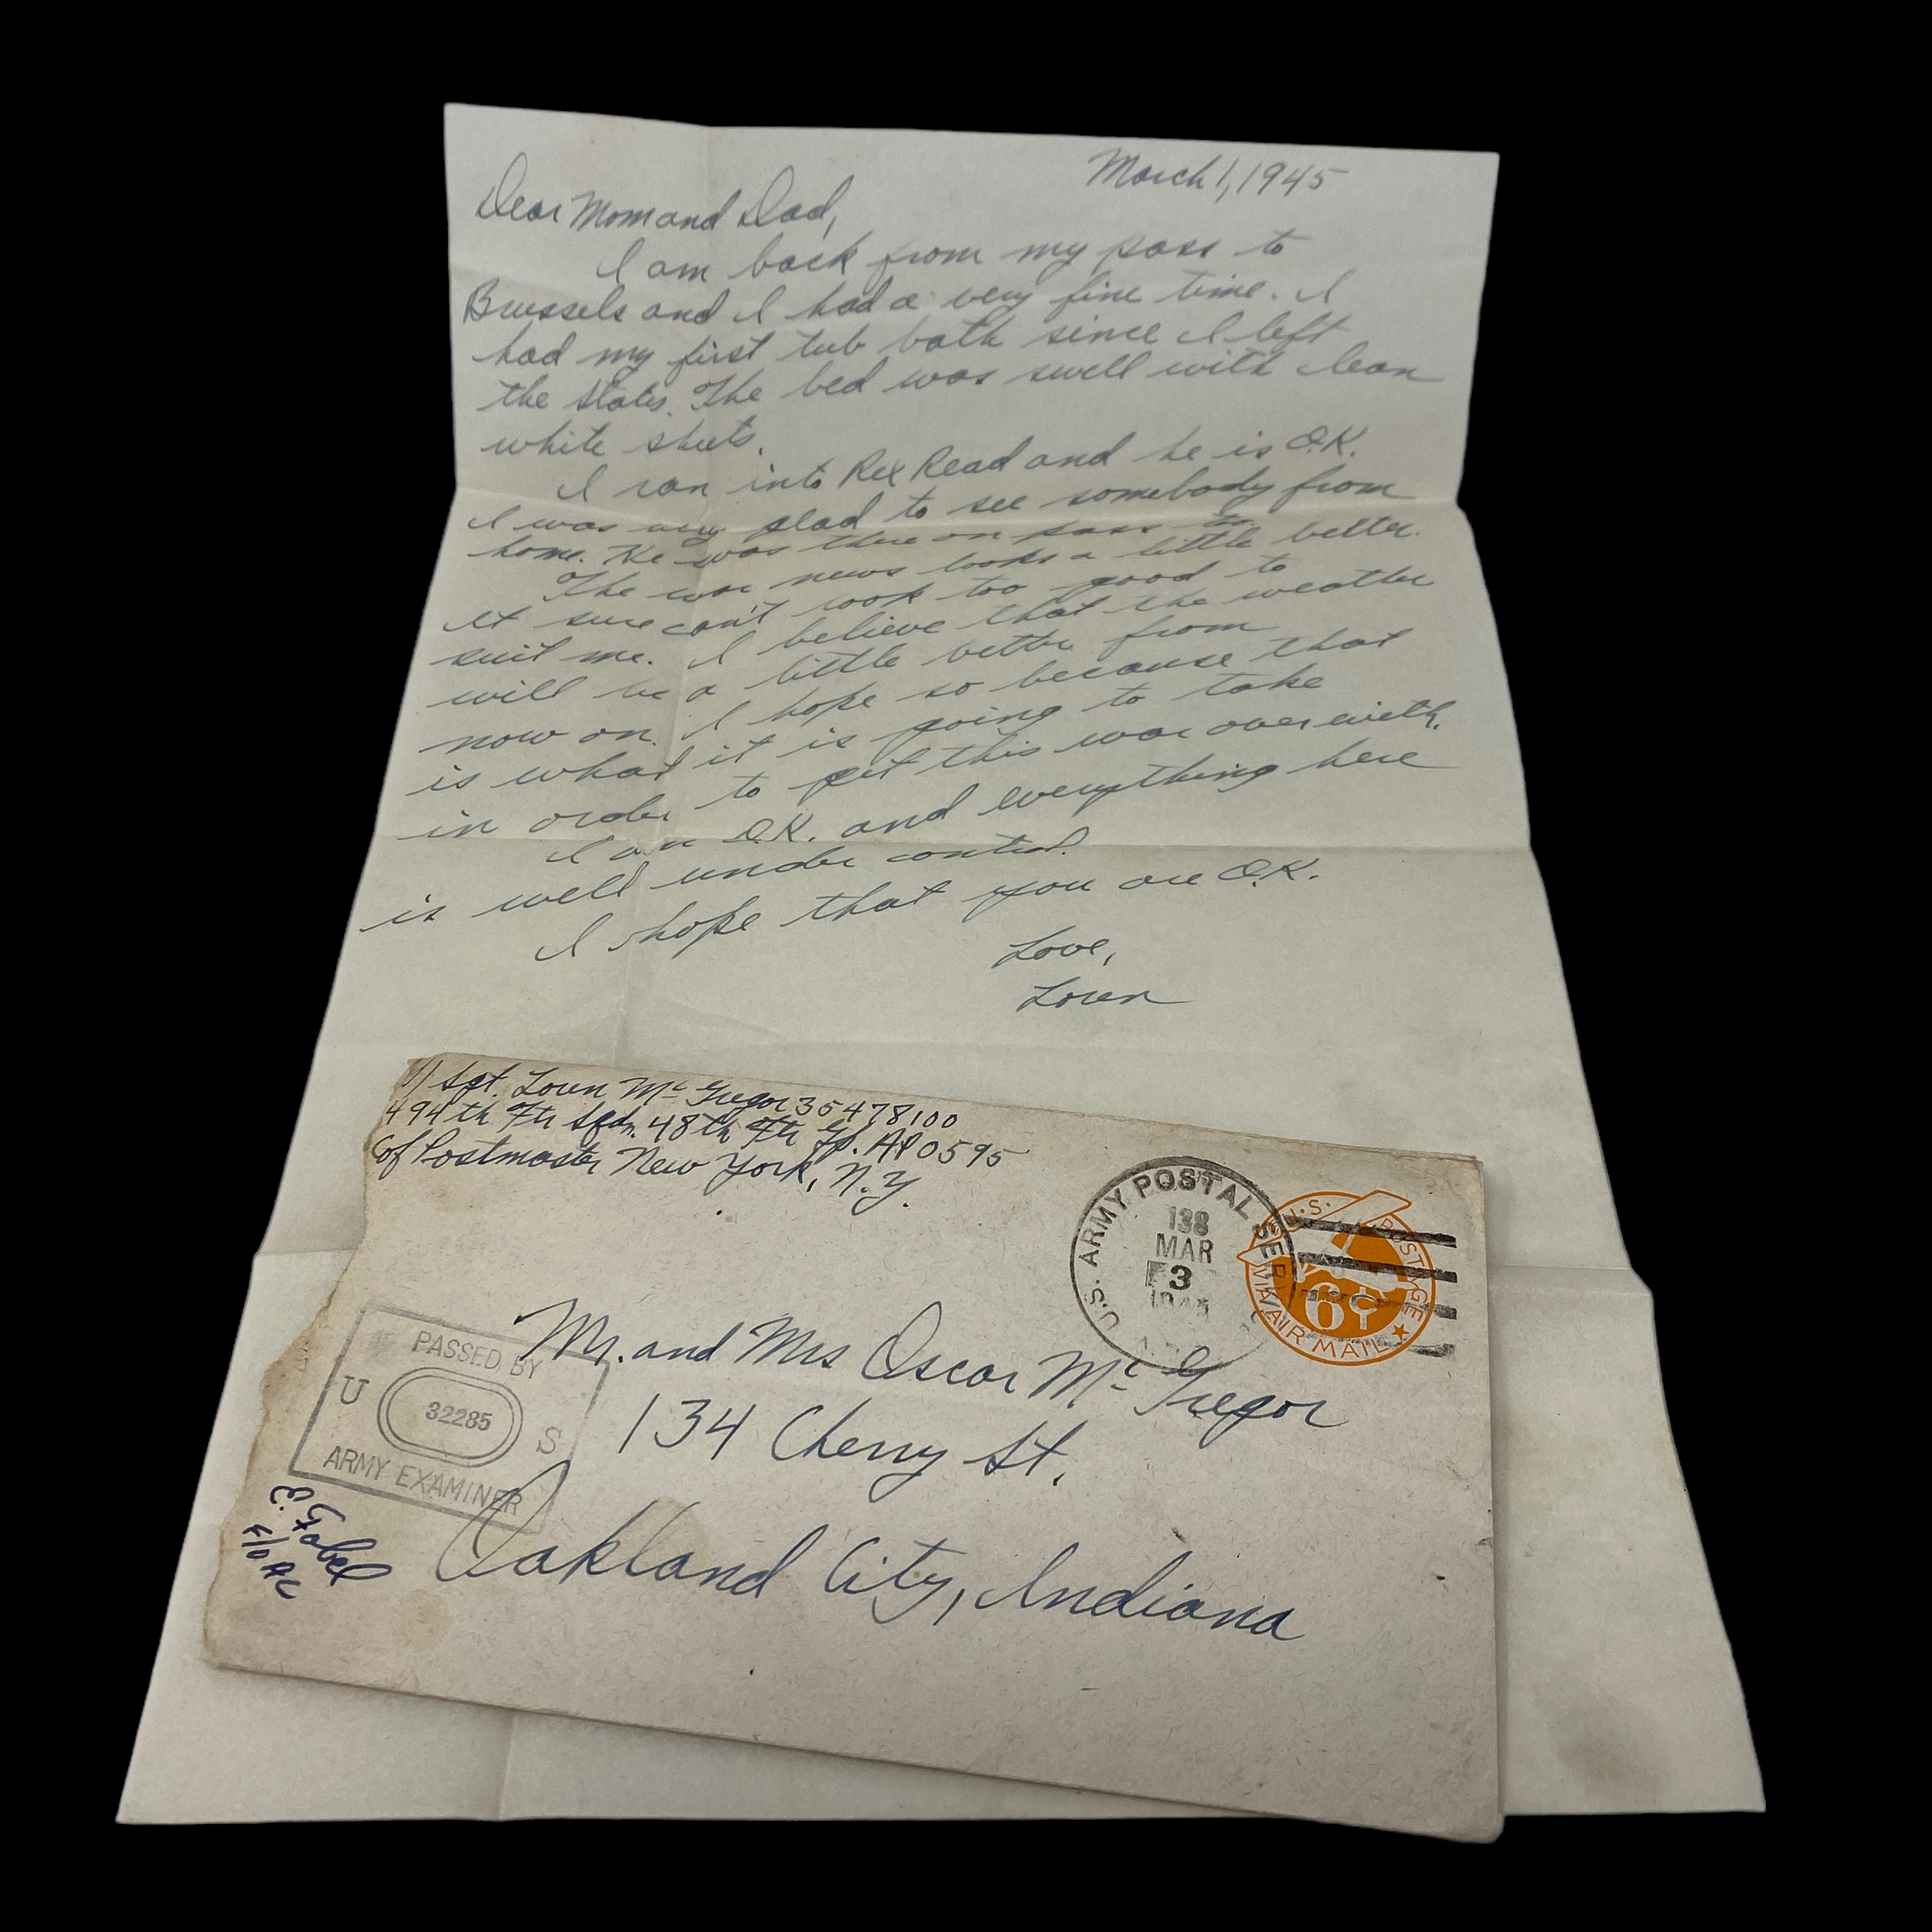 March 1, 1945
Dear Mom and Dad,
I am back from my pass to
Brussels and I had a very fine time. I
had my first tub bath since I left
the States. The bed was swell with clean
white sheets.
I ran into Rex Read and he is O.K.
I was very glad to see somebody from
home. He was there on pass to.
The war news looks a little better.
It sure can't look too good to
suit me. I believe that the weather
will be a little better from
now on. I hope so because that
is what it is going to take
in order to get this war over with.
I am O.K. and everything here
is well under control.
I hope that you are O.K.
Love,
Loren
Sgt. Loren McGregor 35478100
494th Ftr Sqdn. 48th Ftr Gp. APO 595
c/o Postmaster New York, N.Y.
U.S. ARMY POSTAL SERVICE
138
MAR
3
1945
U.S. POSTAGE
6¢
VIA AIR MAIL
PASSED BY
U 32285 S
ARMY EXAMINER
Mr. and Mrs Oscar McGregor
134 Cherry St.
Oakland City, Indiana
E. Gobel
F/O AC